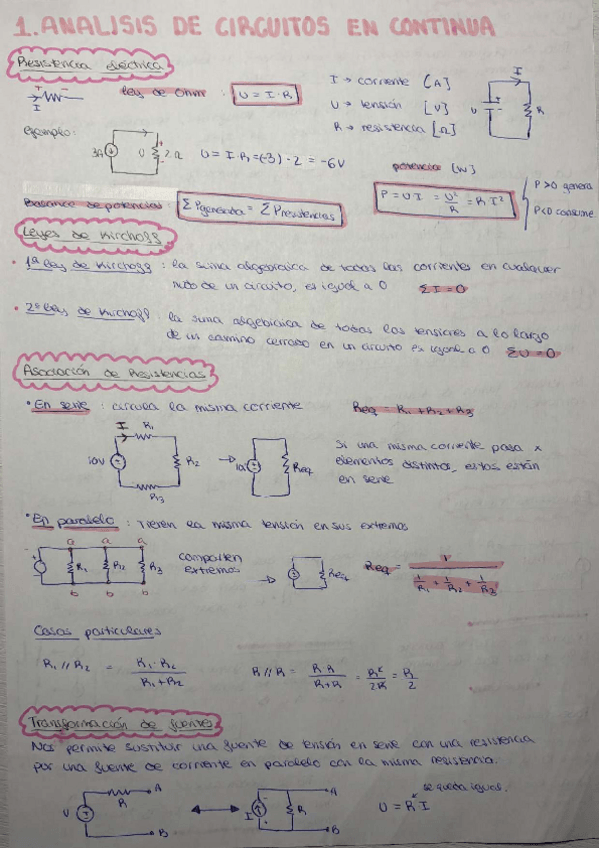 1. ANALISIS DE CIRCUITOS EN CONTINUA
Resistencia eléctrica
+ -
I
ley de Ohm: U = I · R
I → corriente [A]
U → tensión [V]
R → resistencia [Ω]
I
U
R
ejemplo:
3A U 2Ω
U = I · R = (-3) · 2 = -6V
potencia [W]
P = U I = U²/R = R I²
P>0 genera
P<0 consume
Balance de potencias Σ Pgenerada = Σ Presistencias
Leyes de Kirchoff
• 1ª ley de Kirchoff: la suma algebraica de todas las corrientes en cualquier
nudo de un circuito, es igual a 0 ΣI = 0
• 2ª ley de Kirchoff: la suma algebraica de todas las tensiones a lo largo
de un camino cerrado en un circuito es igual a 0 ΣU = 0
Asociación de Resistencias
• En serie: circula la misma corriente Req = R1 + R2 + R3
I R1
10V R2
R3
10 Req
Si una misma corriente pasa x
elementos distintos, estos están
en serie
• En paralelo: tienen la misma tensión en sus extremos
a a a
R1 R2 R3
b b b
comparten
extremos
Req
Req = 1 / (1/R1 + 1/R2 + 1/R3)
Casos particulares
R1 // R2 = R1 · R2 / R1 + R2
R // R = R · R / R + R = R²/2R = R/2
Transformación de fuentes
Nos permite sustituir una fuente de tensión en serie con una resistencia
por una fuente de corriente en paralelo con la misma resistencia.
U R A B
I R A B
se queda igual.
U = R I